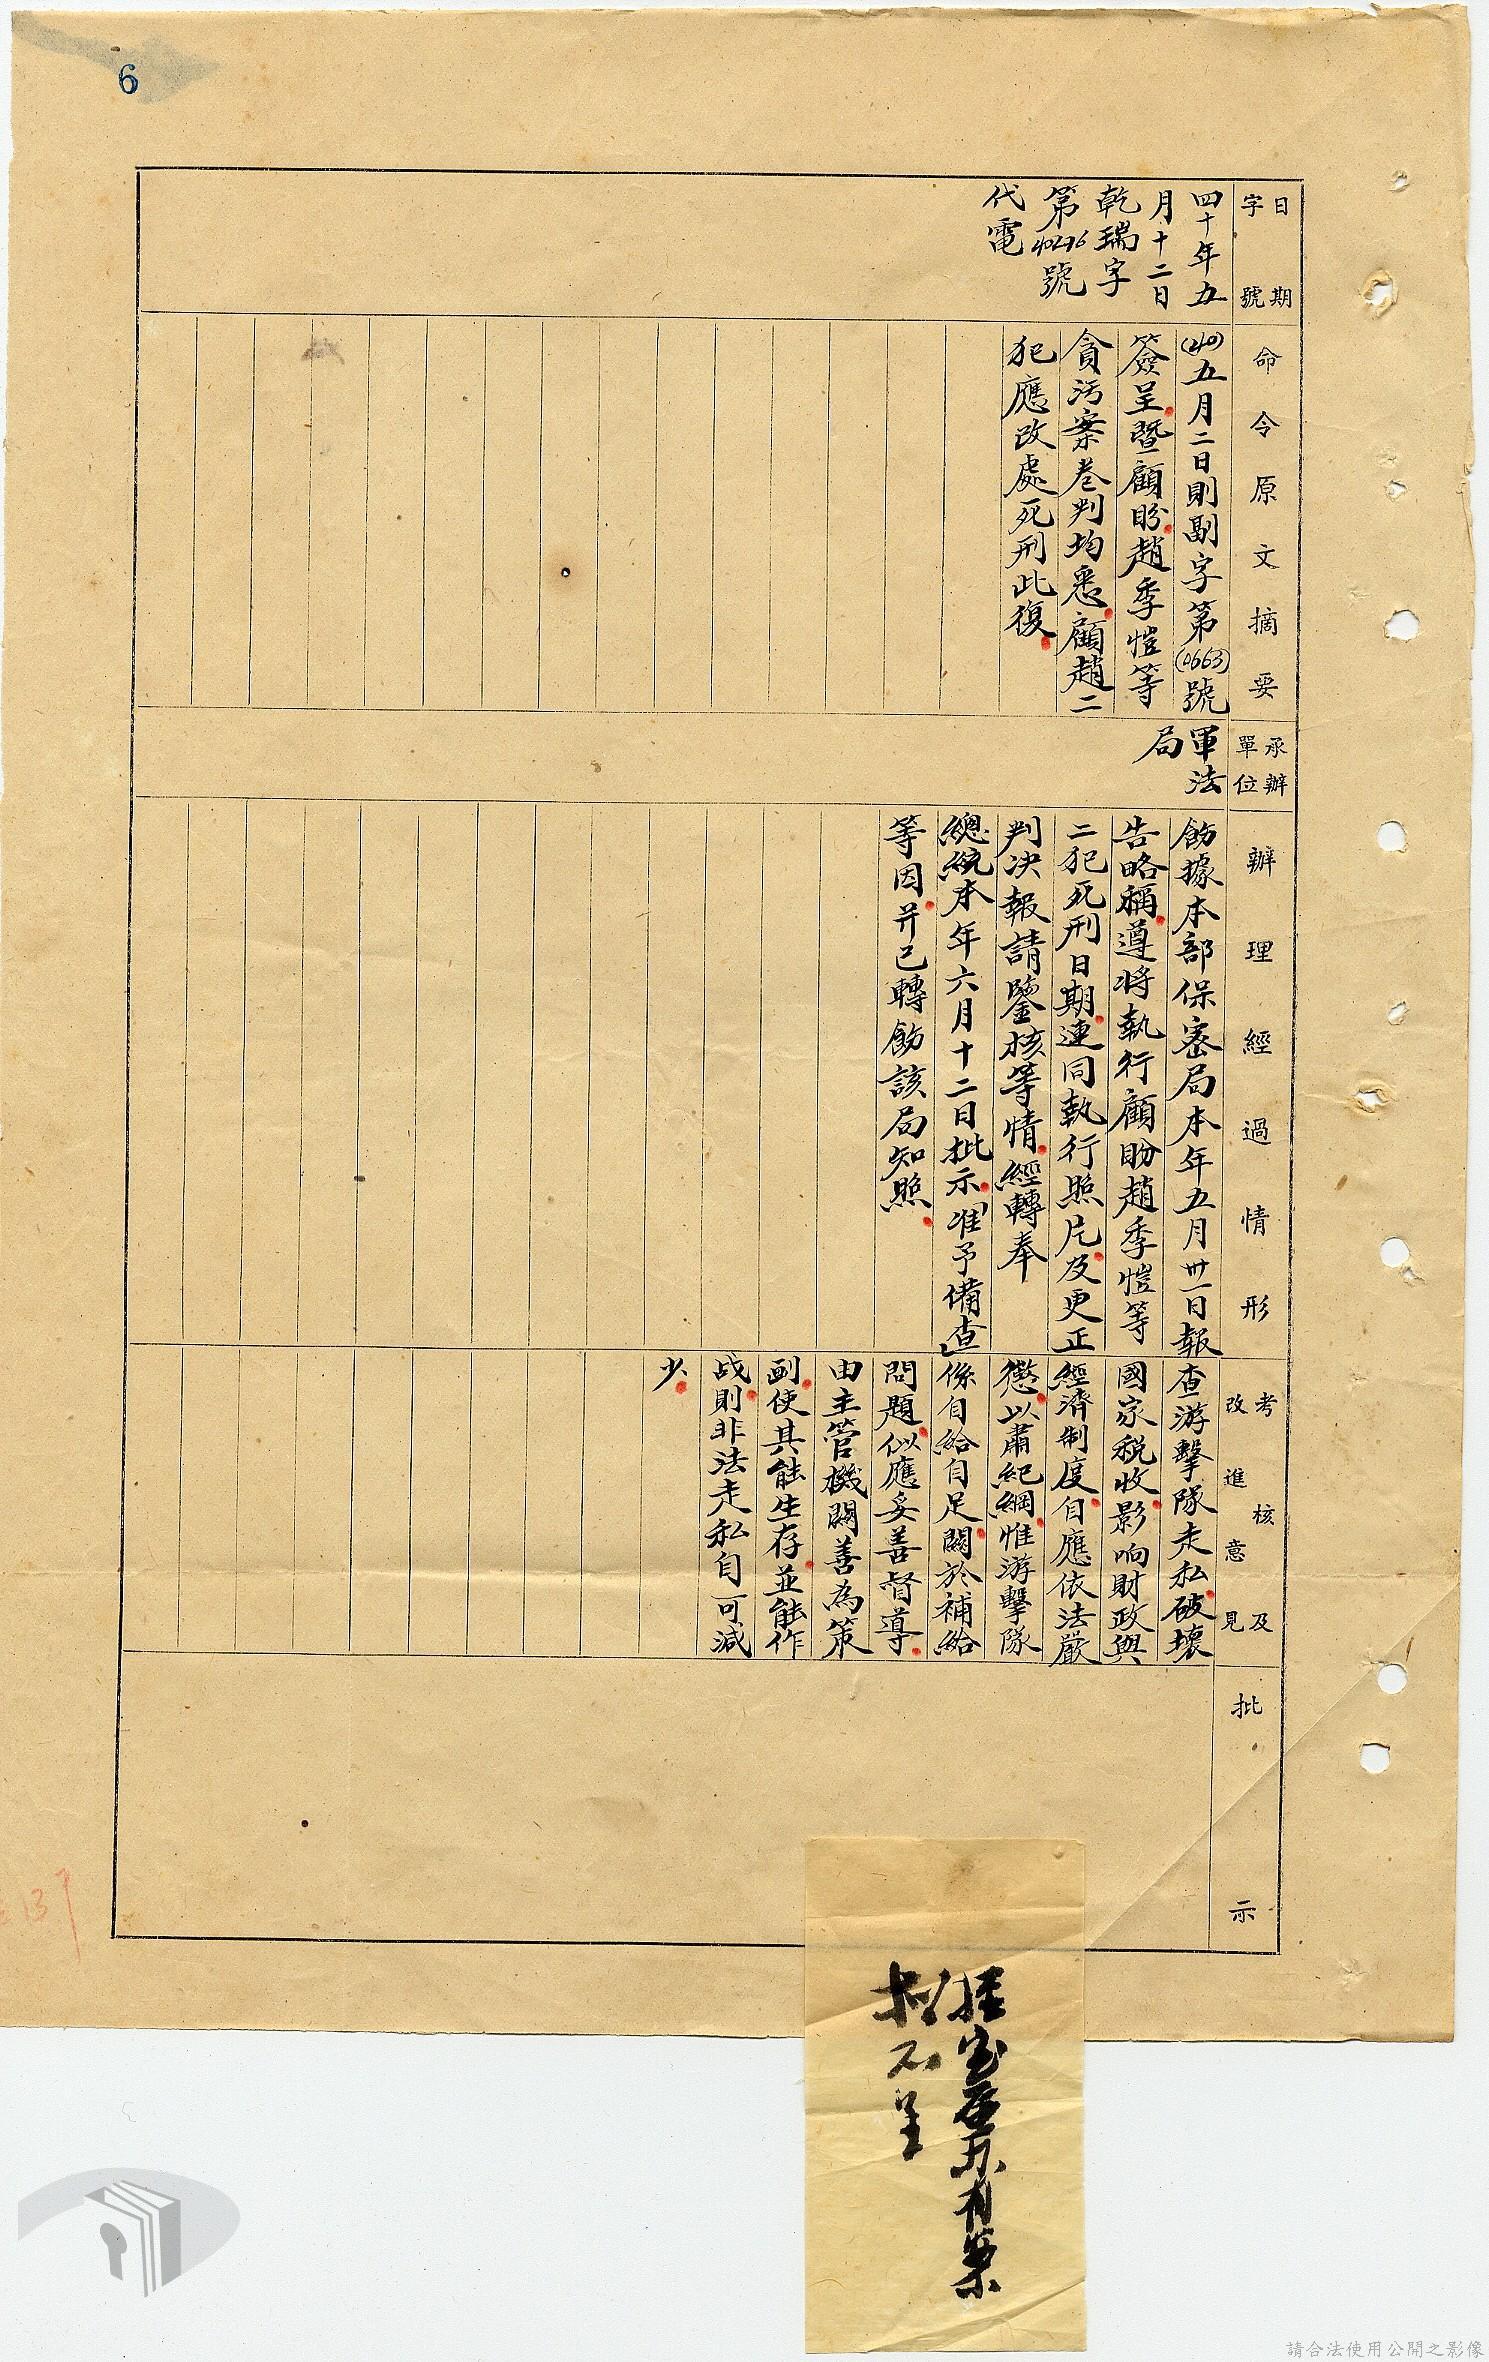 6
日期
字號
四十年五
月十二日
乾瑞字
第40296號
代電
命令原文摘要
(40)五月二日則副字第(0663)號
簽呈暨顧盼趙季愷等
貪污案卷判均悉顧趙二
犯應改處死刑此復
承辦
單位
軍法
局
辦理經過情形
飭據本部保密局本年五月卅一日報
告略稱遵將執行顧盼趙季愷等
二犯死刑日期連同執行照片及更正
判决報請鑒核等情經轉奉
總統本年六月十二日批示「准予備查」
等因并已轉飭該局知照
考核及
改進意見
查游擊隊走私破壞
國家稅收影响財政與
經濟制度自應依法嚴
懲以肅紀綱惟游擊隊
係自給自足關於補給
問題似應妥善督導
由主管機關善為策
劃使其能生存並能作
战則非法走私自可減
少
批示
有案
擬不呈
137
請合法使用公開之影像